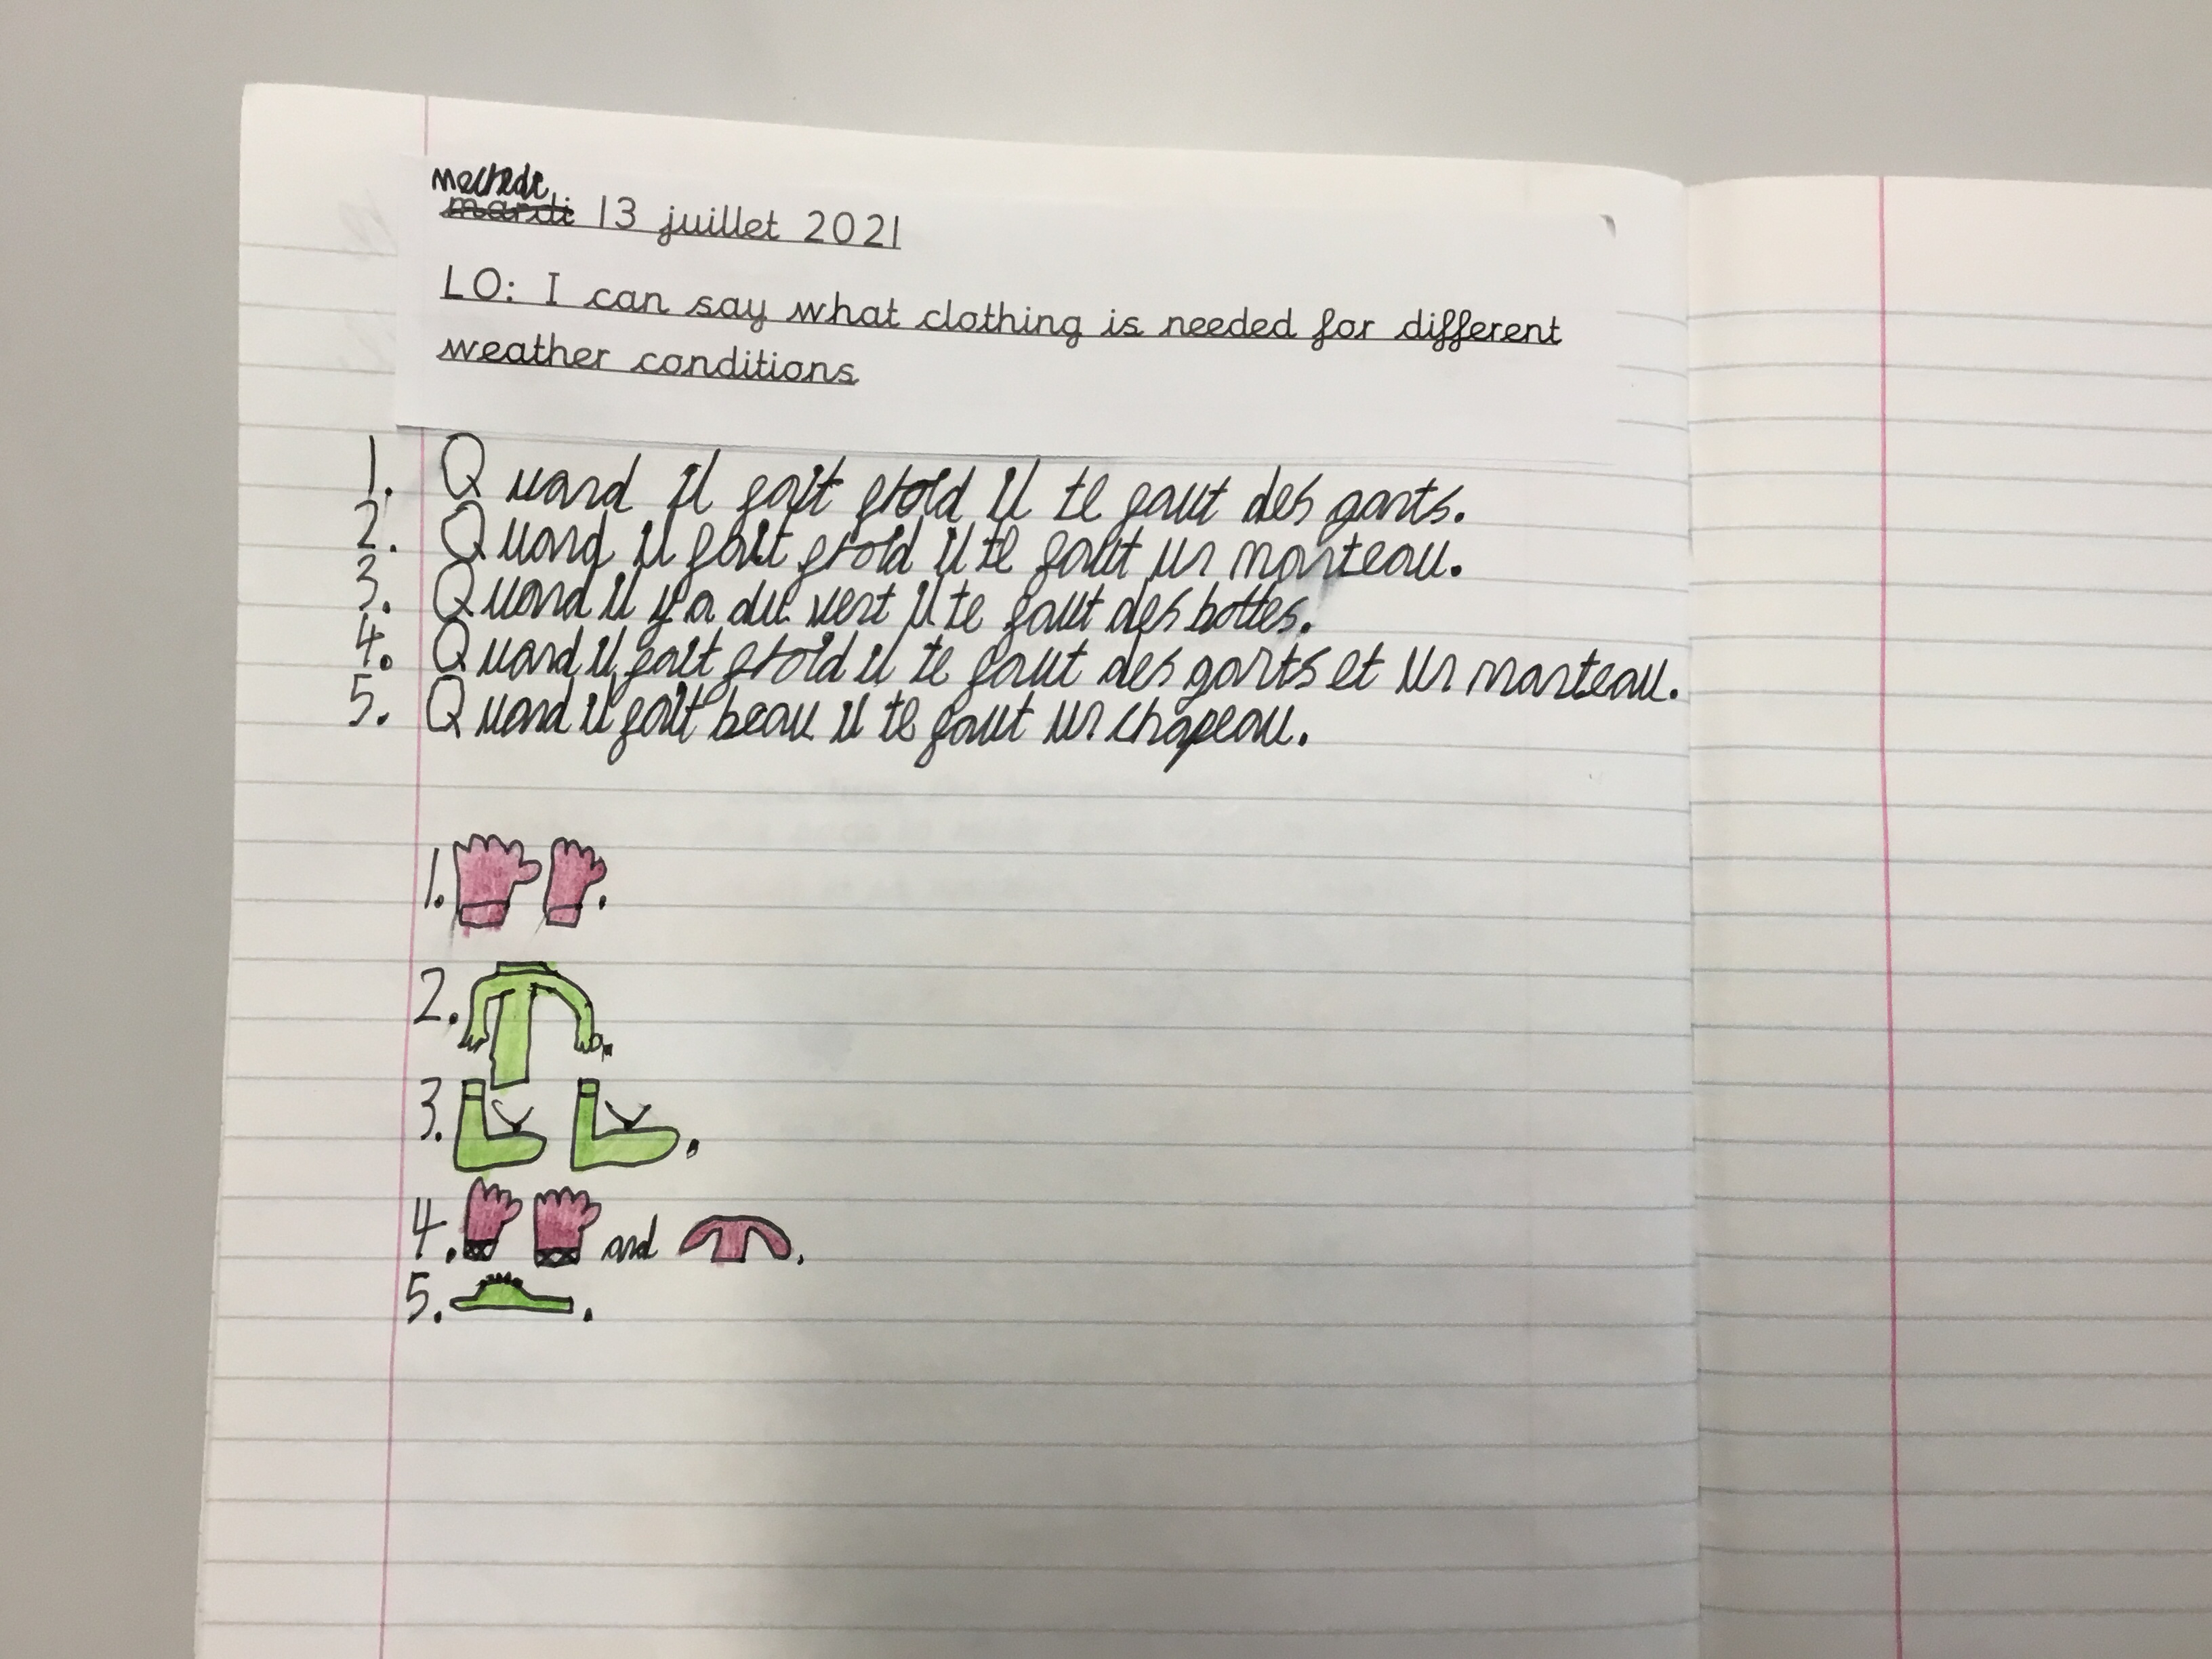 mecredi
mardi 13 juillet 2021
LO: I can say what clothing is needed for different
weather conditions
1. Quand il fait froid il te faut des gants.
2. Quand il fait froid il te faut un manteau.
3. Quand il y'a du vent il te faut des bottes.
4. Quand il fait froid il te faut des gants et un manteau.
5. Quand il fait beau il te faut un chapeau.
1. .
2. .
3. .
4. and .
5. .